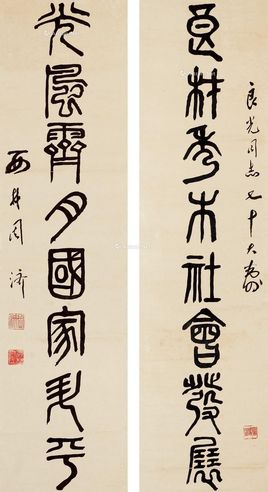 良光同志七十大壽
良材秀木社會發展
光風霽月國家升平
周濟